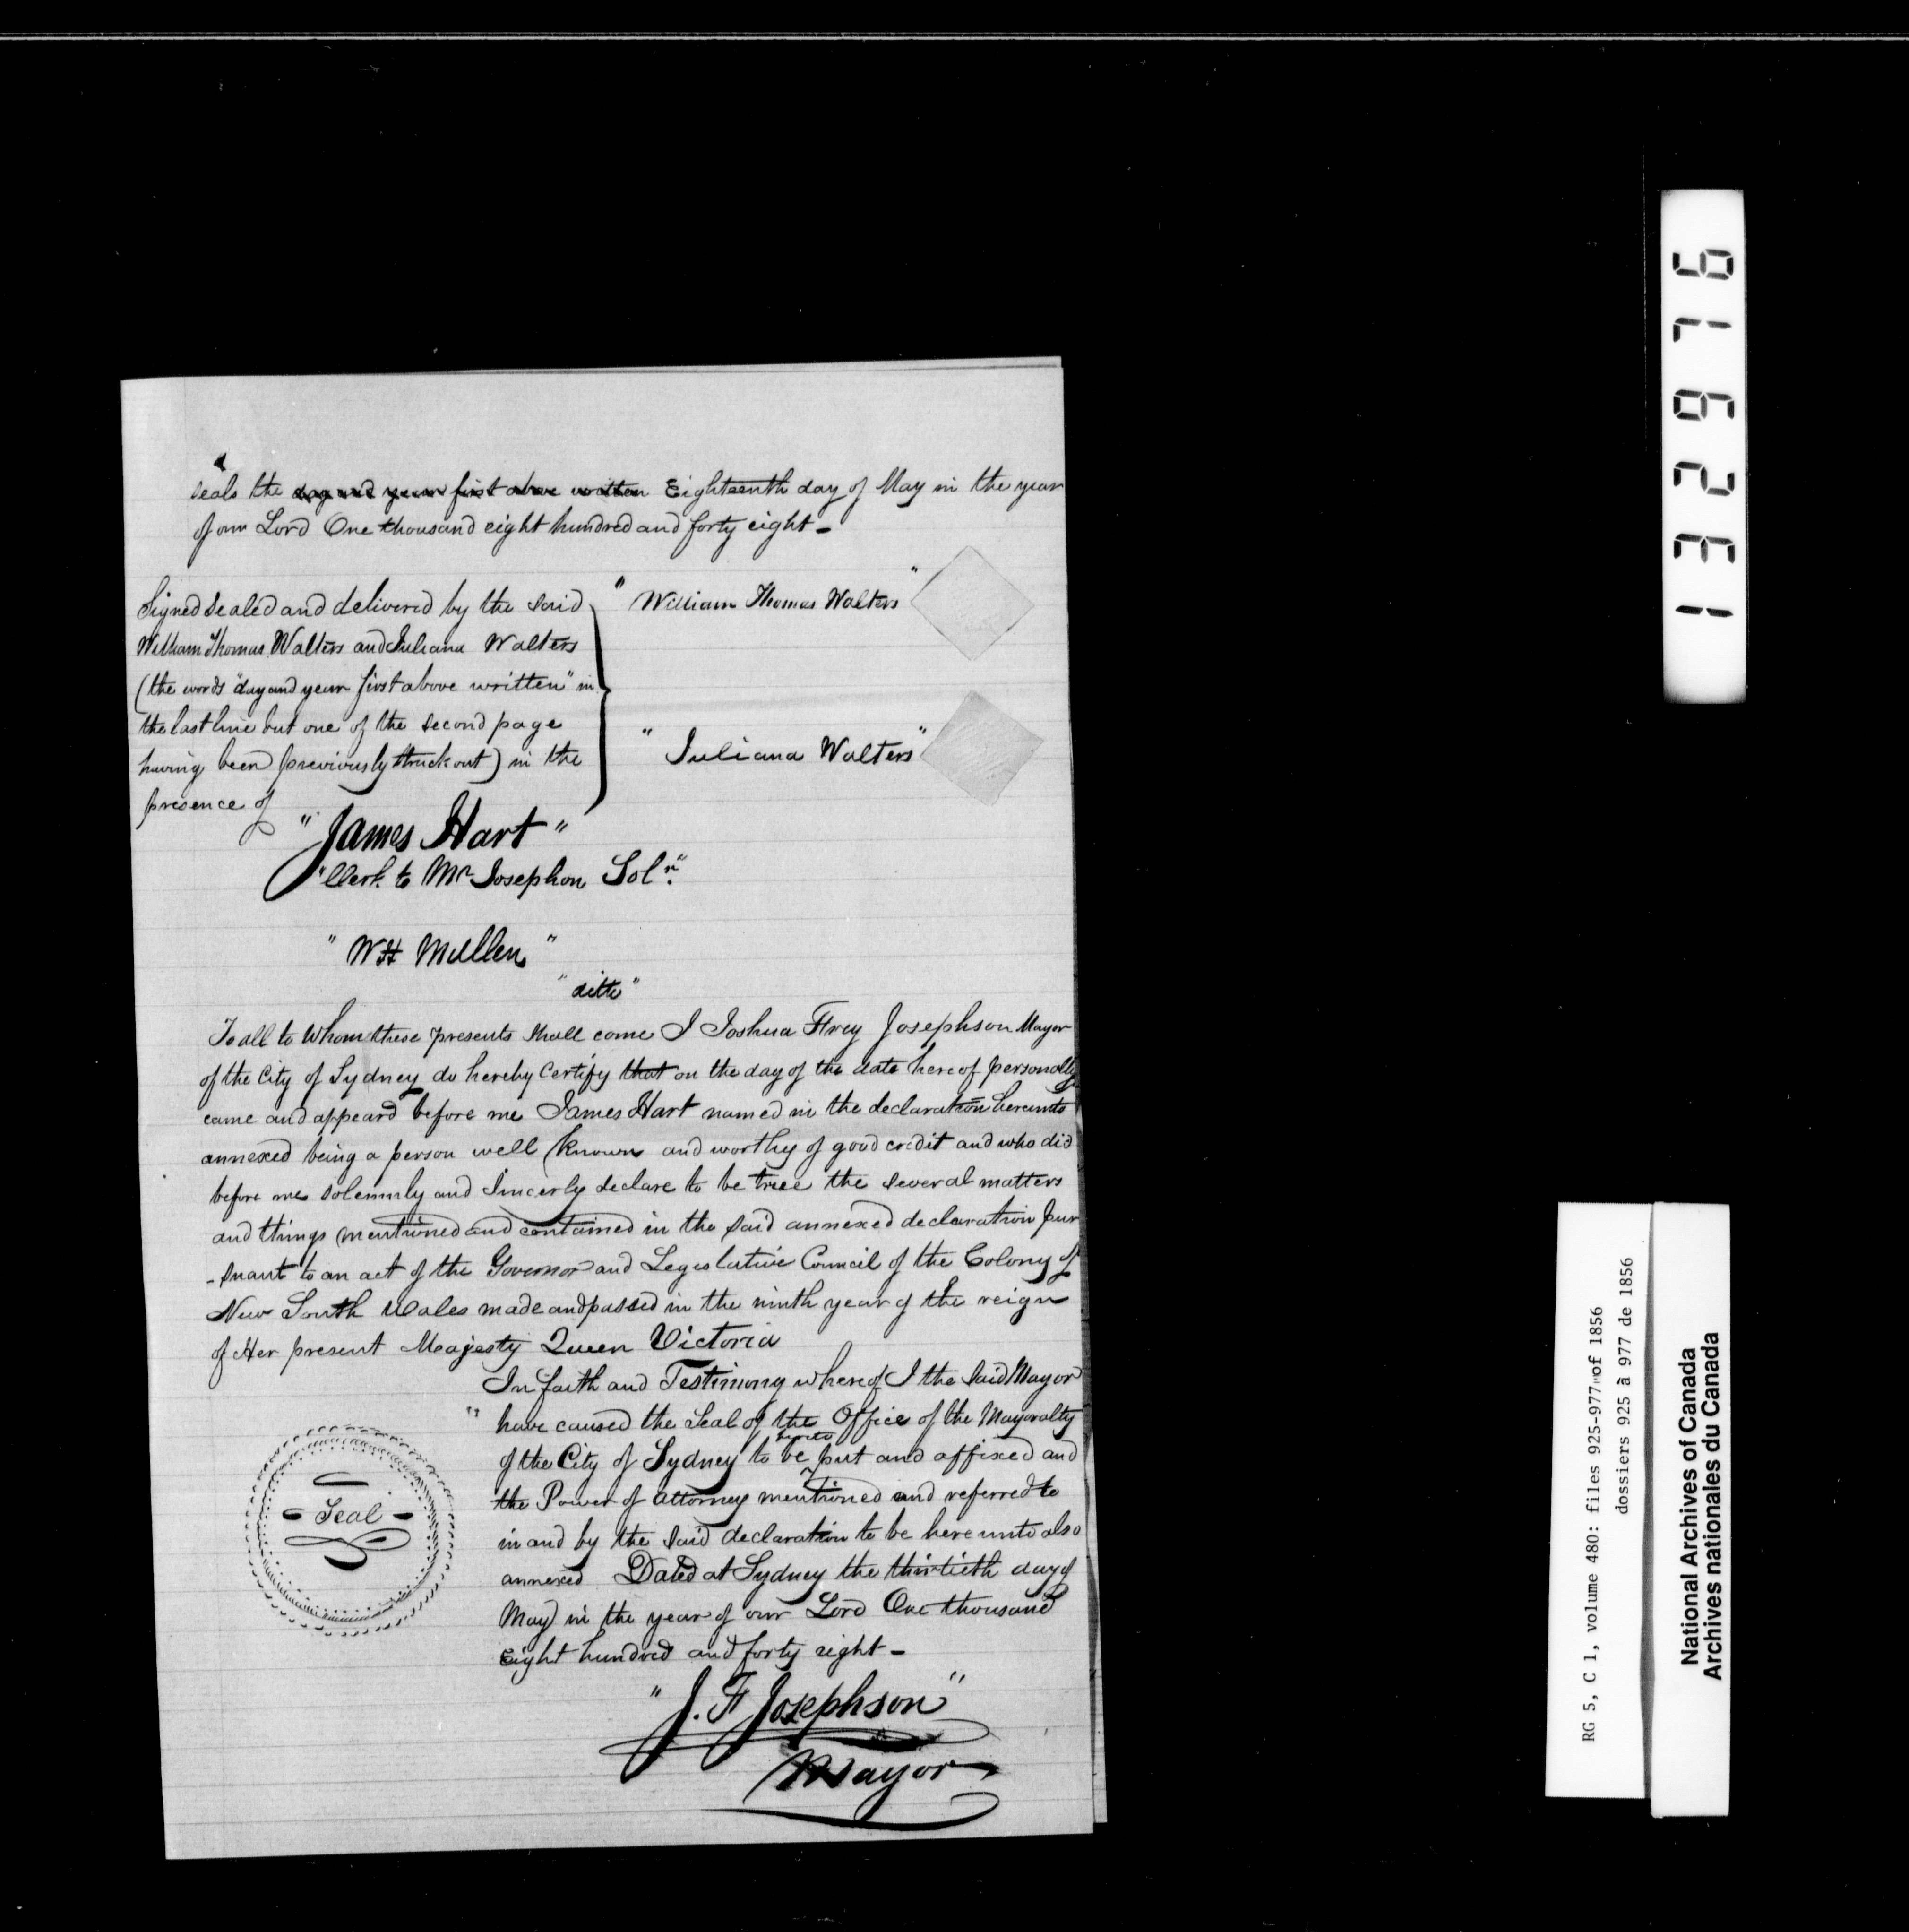 seals the day and year first above written Eighteenth day of May in the year
of our Lord One thousand eight hundred and forty eight -
Signed Sealed and delivered by the said
William Thomas Walters and Juliana Walters
(the words "day and year first above written" in
the last line but one of the second page
having been previously struck out) in the
presence of
"William Thomas Walters"
"Juliana Walters"
"James Hart"
"Clerk to Mr Josephson Solr."
"W H Mullen"
"ditto"
To all to Whom these presents shall come I Joshua Frey Josephson Mayor
of the City of Sydney do hereby Certify that on the day of the date hereof personally
came and appeard before me James Hart named in the declaration hereunto
annexed being a person well known and worthy of good credit and who did
before me solemnly and Sincerly declare to be true the several matters
and things mentioned and contained in the said annexed declaration pur
-suant to an act of the Governor and Legislative Council of the Colony of
New South Wales made and passed in the ninth year of the reign
of Her present Meajesty Queen Victoria
In faith and Testimony whereof I the Said Mayor
have caused the Seal of the Office of the Mayoralty
of the City of Sydney to be hereto put and affixed and
the Power of attorney mentioned and referred to
in and by the said declaration to be hereunto also
annexed Dated at Sydney the thirtieth day of
May in the year of our Lord One thousand
Eight hundred and forty eight -
- Seal -
"J. F Josephson"
Mayor
132976
RG 5, C 1, volume 480: files 925-977 of 1856
dossiers 925 à 977 de 1856
National Archives of Canada
Archives nationales du Canada